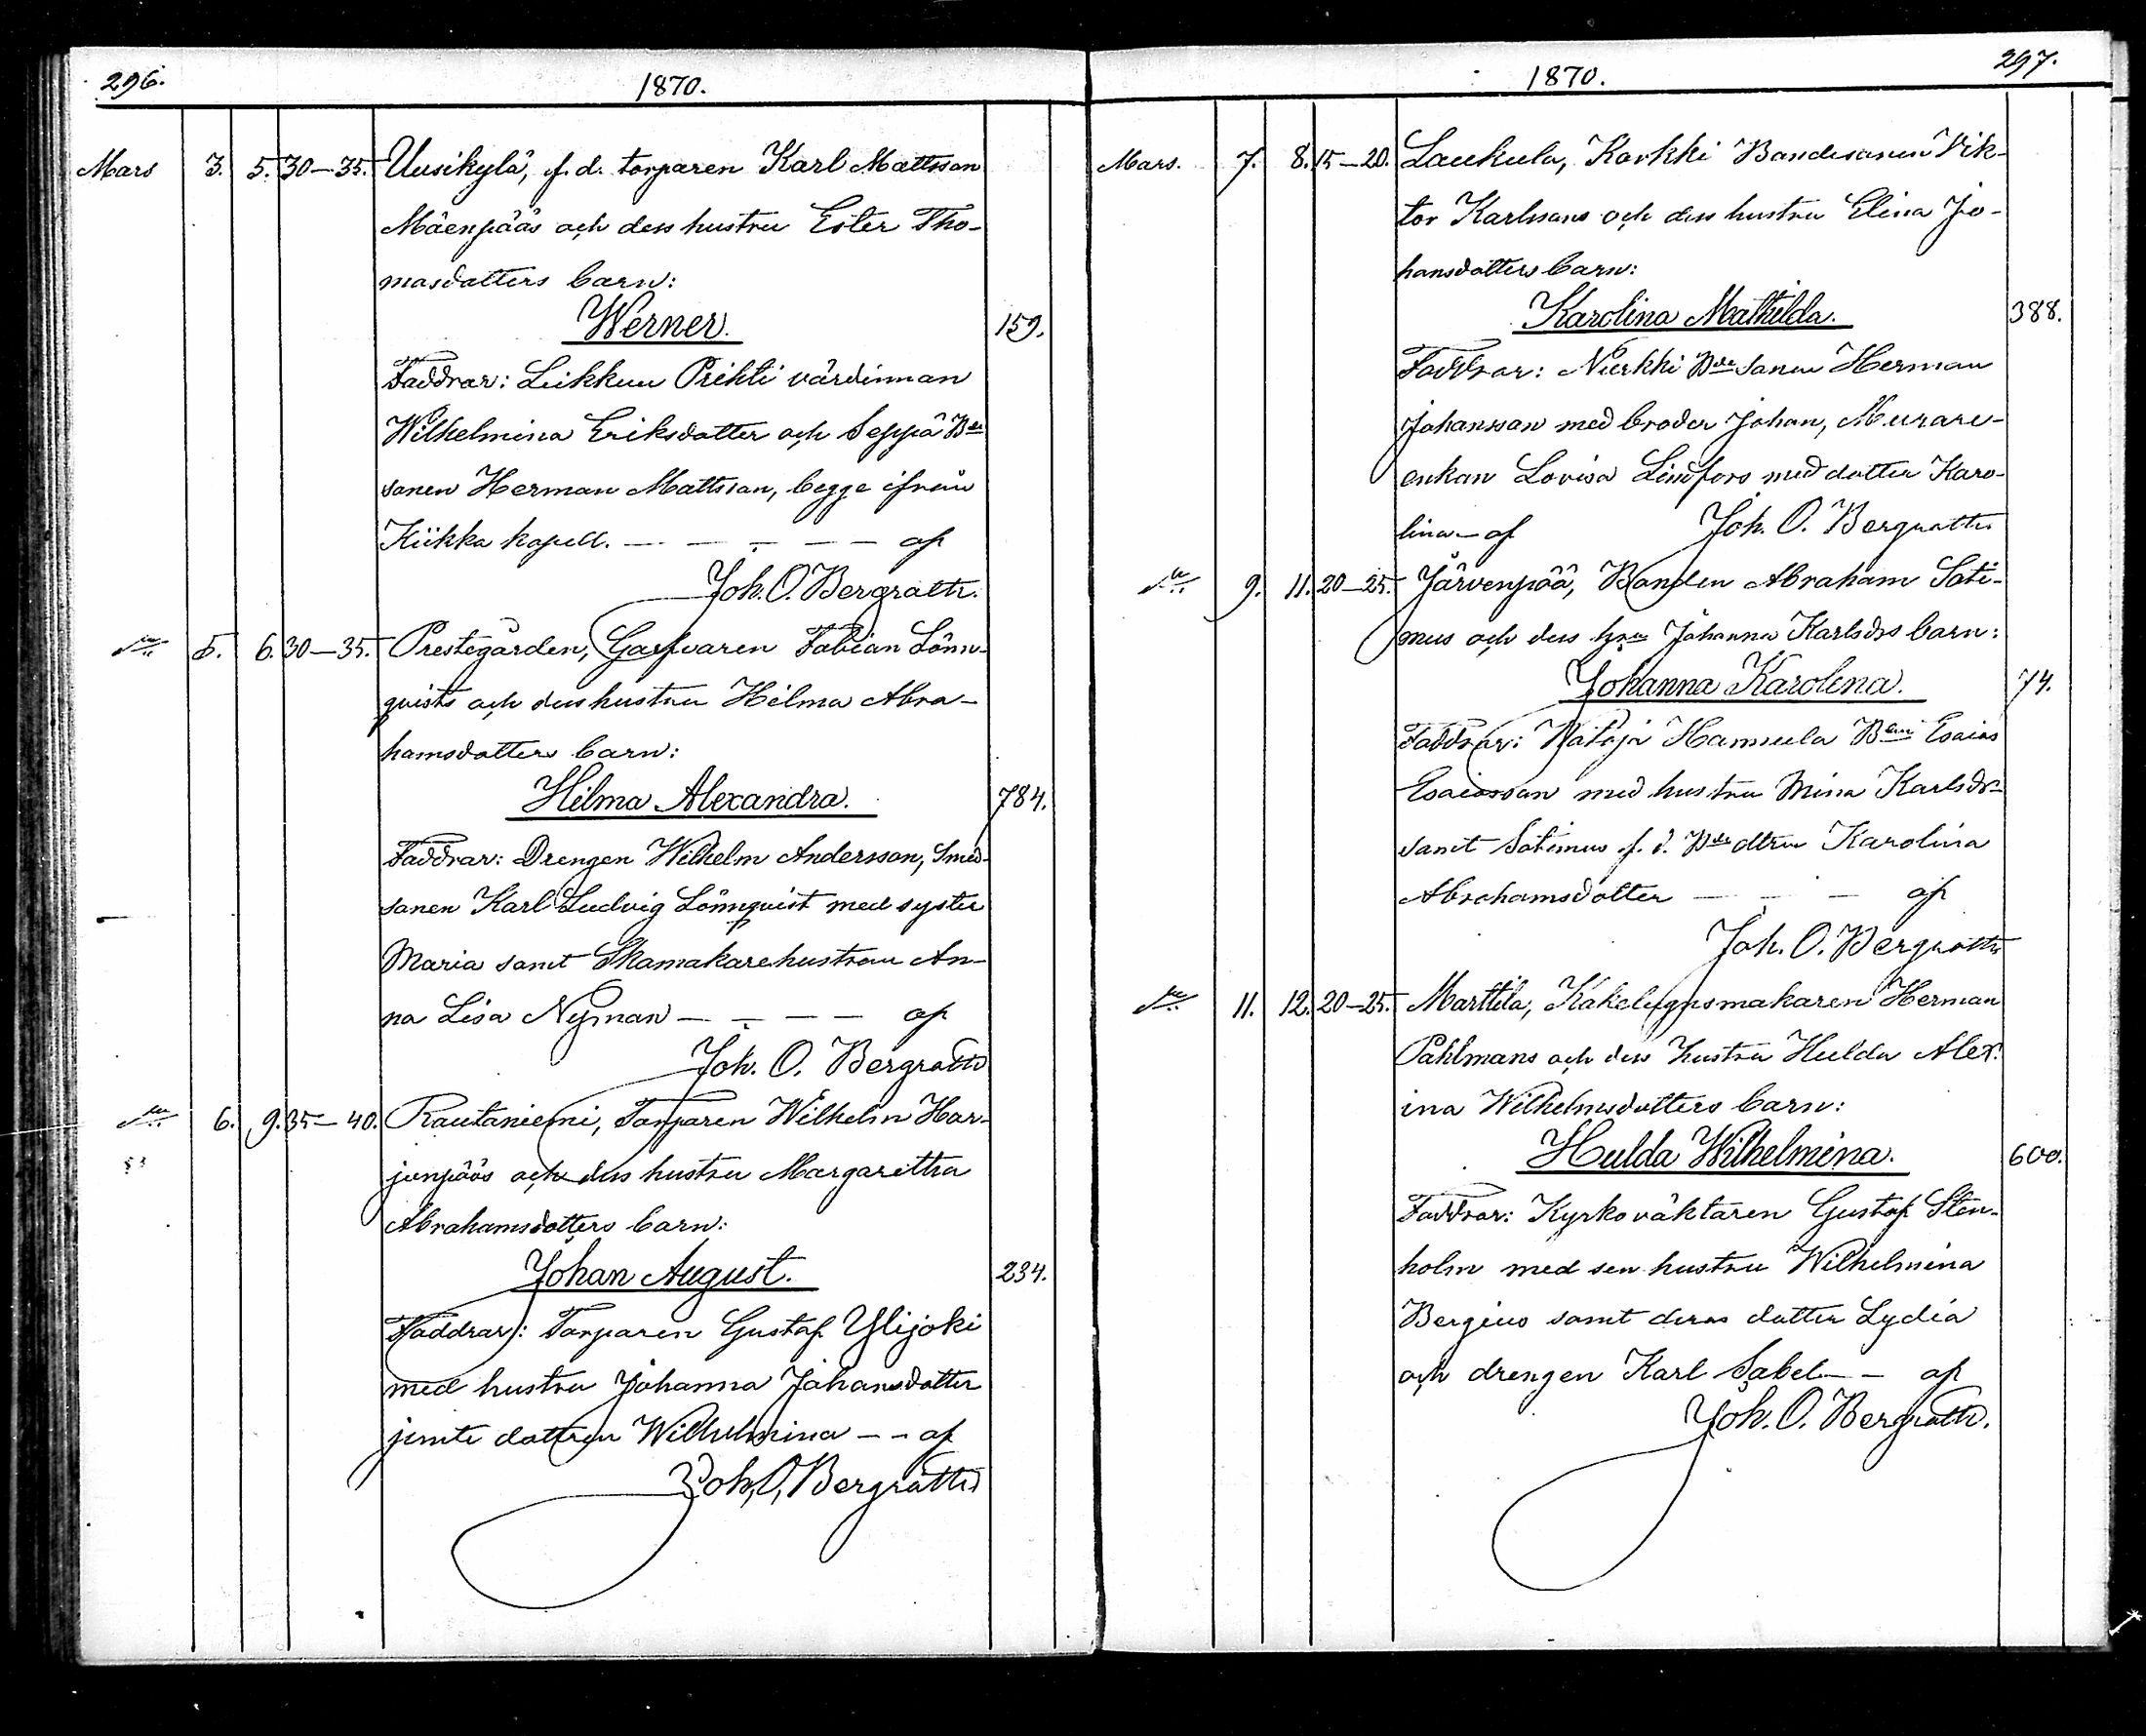 296.
1870.
Mars 3. 5. 30–35. Uusikylä, f. d. torparen Karl Mattsson
Mäenpääs och dess hustru Ester Tho-
masdotters barn:
Werner. 159.
Faddrar: Liekkuu Prihti värdinnan
Wilhelmina Eriksdotter och Seppä Bde
sonen Herman Mattsson, begge ifrån
Kiikka kapell. — — — — — af
Joh. O. Bergroth.
5. 6. 30–35. Prestegården, Garfvaren Fabian Lönn-
qvists och dess hustru Hilma Abra-
hamsdotters barn:
Hilma Alexandra. 784.
Faddrar: Drengen Wilhelm Andersson, Smed-
sonen Karl Ludvig Lönnqvist med syster
Maria samt Skomakarehustrun An-
na Lisa Nyman — — — — af
Joh. O. Bergroth
6. 9. 35–40. Rautaniemi, Torparen Wilhelm Har-
junpääs och dess hustru Margaretha
Abrahamsdotters barn:
Johan August. 234.
Faddrar: Torparen Gustaf Ylijoki
med hustru Johanna Johansdotter
jemte dottren Wilhelmina — — af
Joh. O. Bergroth
297.
1870.
Mars. 7. 8. 15–20. Laukula, Karkki Bondesonen Vik-
tor Karlssons och dess hustru Elina Jo-
hansdotters barn:
Karolina Mathilda. 388.
Faddrar: Nurkki Bde sonen Herman
Johansson med broder Johan, Murare-
enkan Lovisa Lindfors med dotter Karo-
lina — af Joh. O. Bergroth
9. 11. 20–25. Järvenpää, Bonden Abraham Soti-
mus och dess hru Johanna Karlsdrs barn:
Johanna Karolina. 74.
Faddrar: Nataja Hannula Bden Esaias
Esaiasson med hustru Mina Karlsdr
samt Sotimus f. d. Bde dttren Karolina
Abrahamsdotter — — — af
Joh. O. Bergroth
11. 12. 20–25. Marttila, Kakelugnsmakaren Herman
Pahlmans och dess hustru Hulda Alex-
ina Wilhelmsdotters barn:
Hulda Wilhelmina. 600.
Faddrar: Kyrkoväktaren Gustaf Sten-
holm med sin hustru Wilhelmina
Bergius samt deras dotter Lydia
och drengen Karl Sabel — — af
Joh. O. Bergroth.